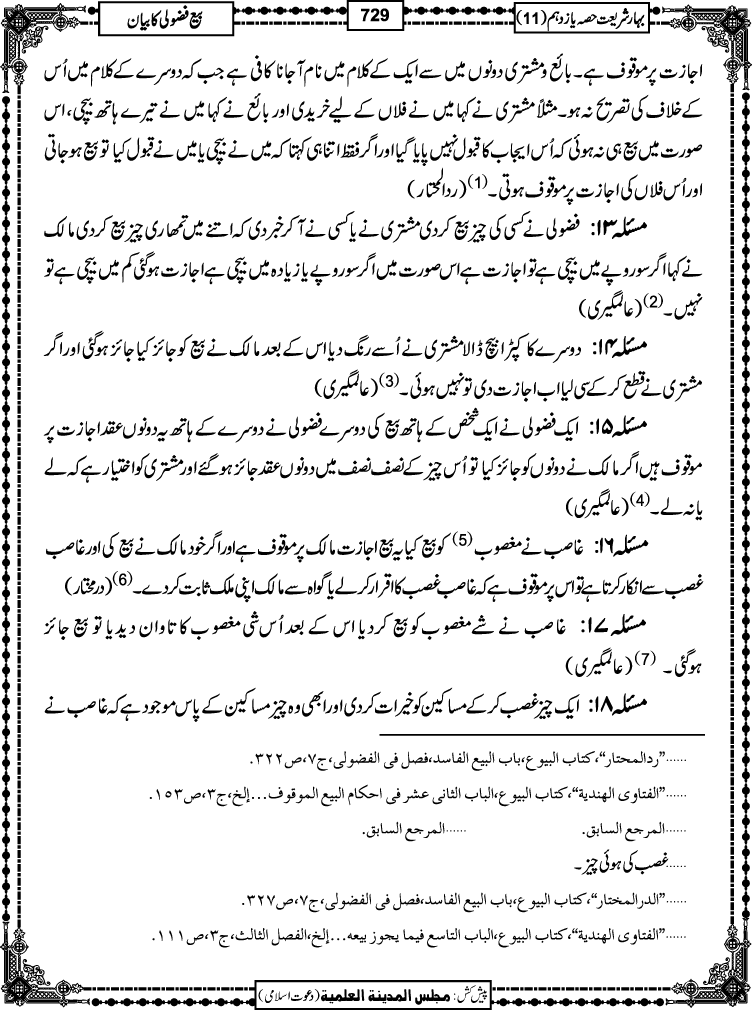 بہار شریعت حصہ یازدہم (11)
729
بیع فضولی کا بیان
اجازت پر موقوف ہے۔ بائع و مشتری دونوں میں سے ایک کے کلام میں نام آجانا کافی ہے جب کہ دوسرے کے کلام میں اُس
کے خلاف کی تصریح نہ ہو۔ مثلاً مشتری نے کہا میں نے فلاں کے لیے خریدی اور بائع نے کہا میں نے تیرے ہاتھ بیچی، اس
صورت میں بیع ہی نہ ہوئی کہ اُس ایجاب کا قبول نہیں پایا گیا اور اگر فقط اتنا ہی کہتا کہ میں نے بیچی یا میں نے قبول کیا تو بیع ہوجاتی
اور اُس فلاں کی اجازت پر موقوف ہوتی۔(1) (ردالمحتار)
مسئلہ ۱۳: فضولی نے کسی کی چیز بیع کر دی مشتری نے یا کسی نے آکر خبر دی کہ اتنے میں تمھاری چیز بیع کردی مالک
نے کہا اگر سو روپے میں بیچی ہے تو اجازت ہے اس صورت میں اگر سو روپے یا زیادہ میں بیچی ہے اجازت ہوگئی کم میں بیچی ہے تو
نہیں۔(2) (عالمگیری)
مسئلہ ۱۴: دوسرے کا کپڑا بیچ ڈالا مشتری نے اُسے رنگ دیا اس کے بعد مالک نے بیع کو جائز کیا جائز ہوگئی اور اگر
مشتری نے قطع کر کے سی لیا اب اجازت دی تو نہیں ہوئی۔(3) (عالمگیری)
مسئلہ ۱۵: ایک فضولی نے ایک شخص کے ہاتھ بیع کی دوسرے فضولی نے دوسرے کے ہاتھ یہ دونوں عقد اجازت پر
موقوف ہیں اگر مالک نے دونوں کو جائز کیا تو اُس چیز کے نصف نصف میں دونوں عقد جائز ہوگئے اور مشتری کو اختیار ہے کہ لے
یا نہ لے۔(4) (عالمگیری)
مسئلہ ۱۶: غاصب نے مغصوب(5) کو بیع کیا یہ بیع اجازت مالک پر موقوف ہے اور اگر خود مالک نے بیع کی اور غاصب
غصب سے انکار کرتا ہے تو اس پر موقوف ہے کہ غاصب غصب کا اقرار کرلے یا گواہ سے مالک اپنی ملک ثابت کر دے۔(6) (درمختار)
مسئلہ ۱۷: غاصب نے شے مغصوب کو بیع کردیا اس کے بعد اُس شی مغصوب کا تاوان دیدیا تو بیع جائز
ہوگئی۔(7) (عالمگیری)
مسئلہ ۱۸: ایک چیز غصب کر کے مساکین کو خیرات کر دی اور ابھی وہ چیز مساکین کے پاس موجود ہے کہ غاصب نے
......”ردالمحتار“، کتاب البیوع، باب البیع الفاسد، فصل فی الفضولی، ج۷، ص۳۲۲.
......”الفتاوی الهندية“، کتاب البیوع، الباب الثانی عشر فی احکام البیع الموقوف...إلخ، ج۳، ص۱۵۳.
......المرجع السابق. ......المرجع السابق.
......غصب کی ہوئی چیز۔
......”الدرالمختار“، کتاب البیوع، باب البیع الفاسد، فصل فی الفضولی، ج۷، ص۳۲۷.
......”الفتاوی الهندية“، کتاب البیوع، الباب التاسع فیما یجوز بیعه...إلخ، الفصل الثالث، ج۳، ص۱۱۱.
پیش کش: مجلس المدینة العلمیة (دعوت اسلامی)